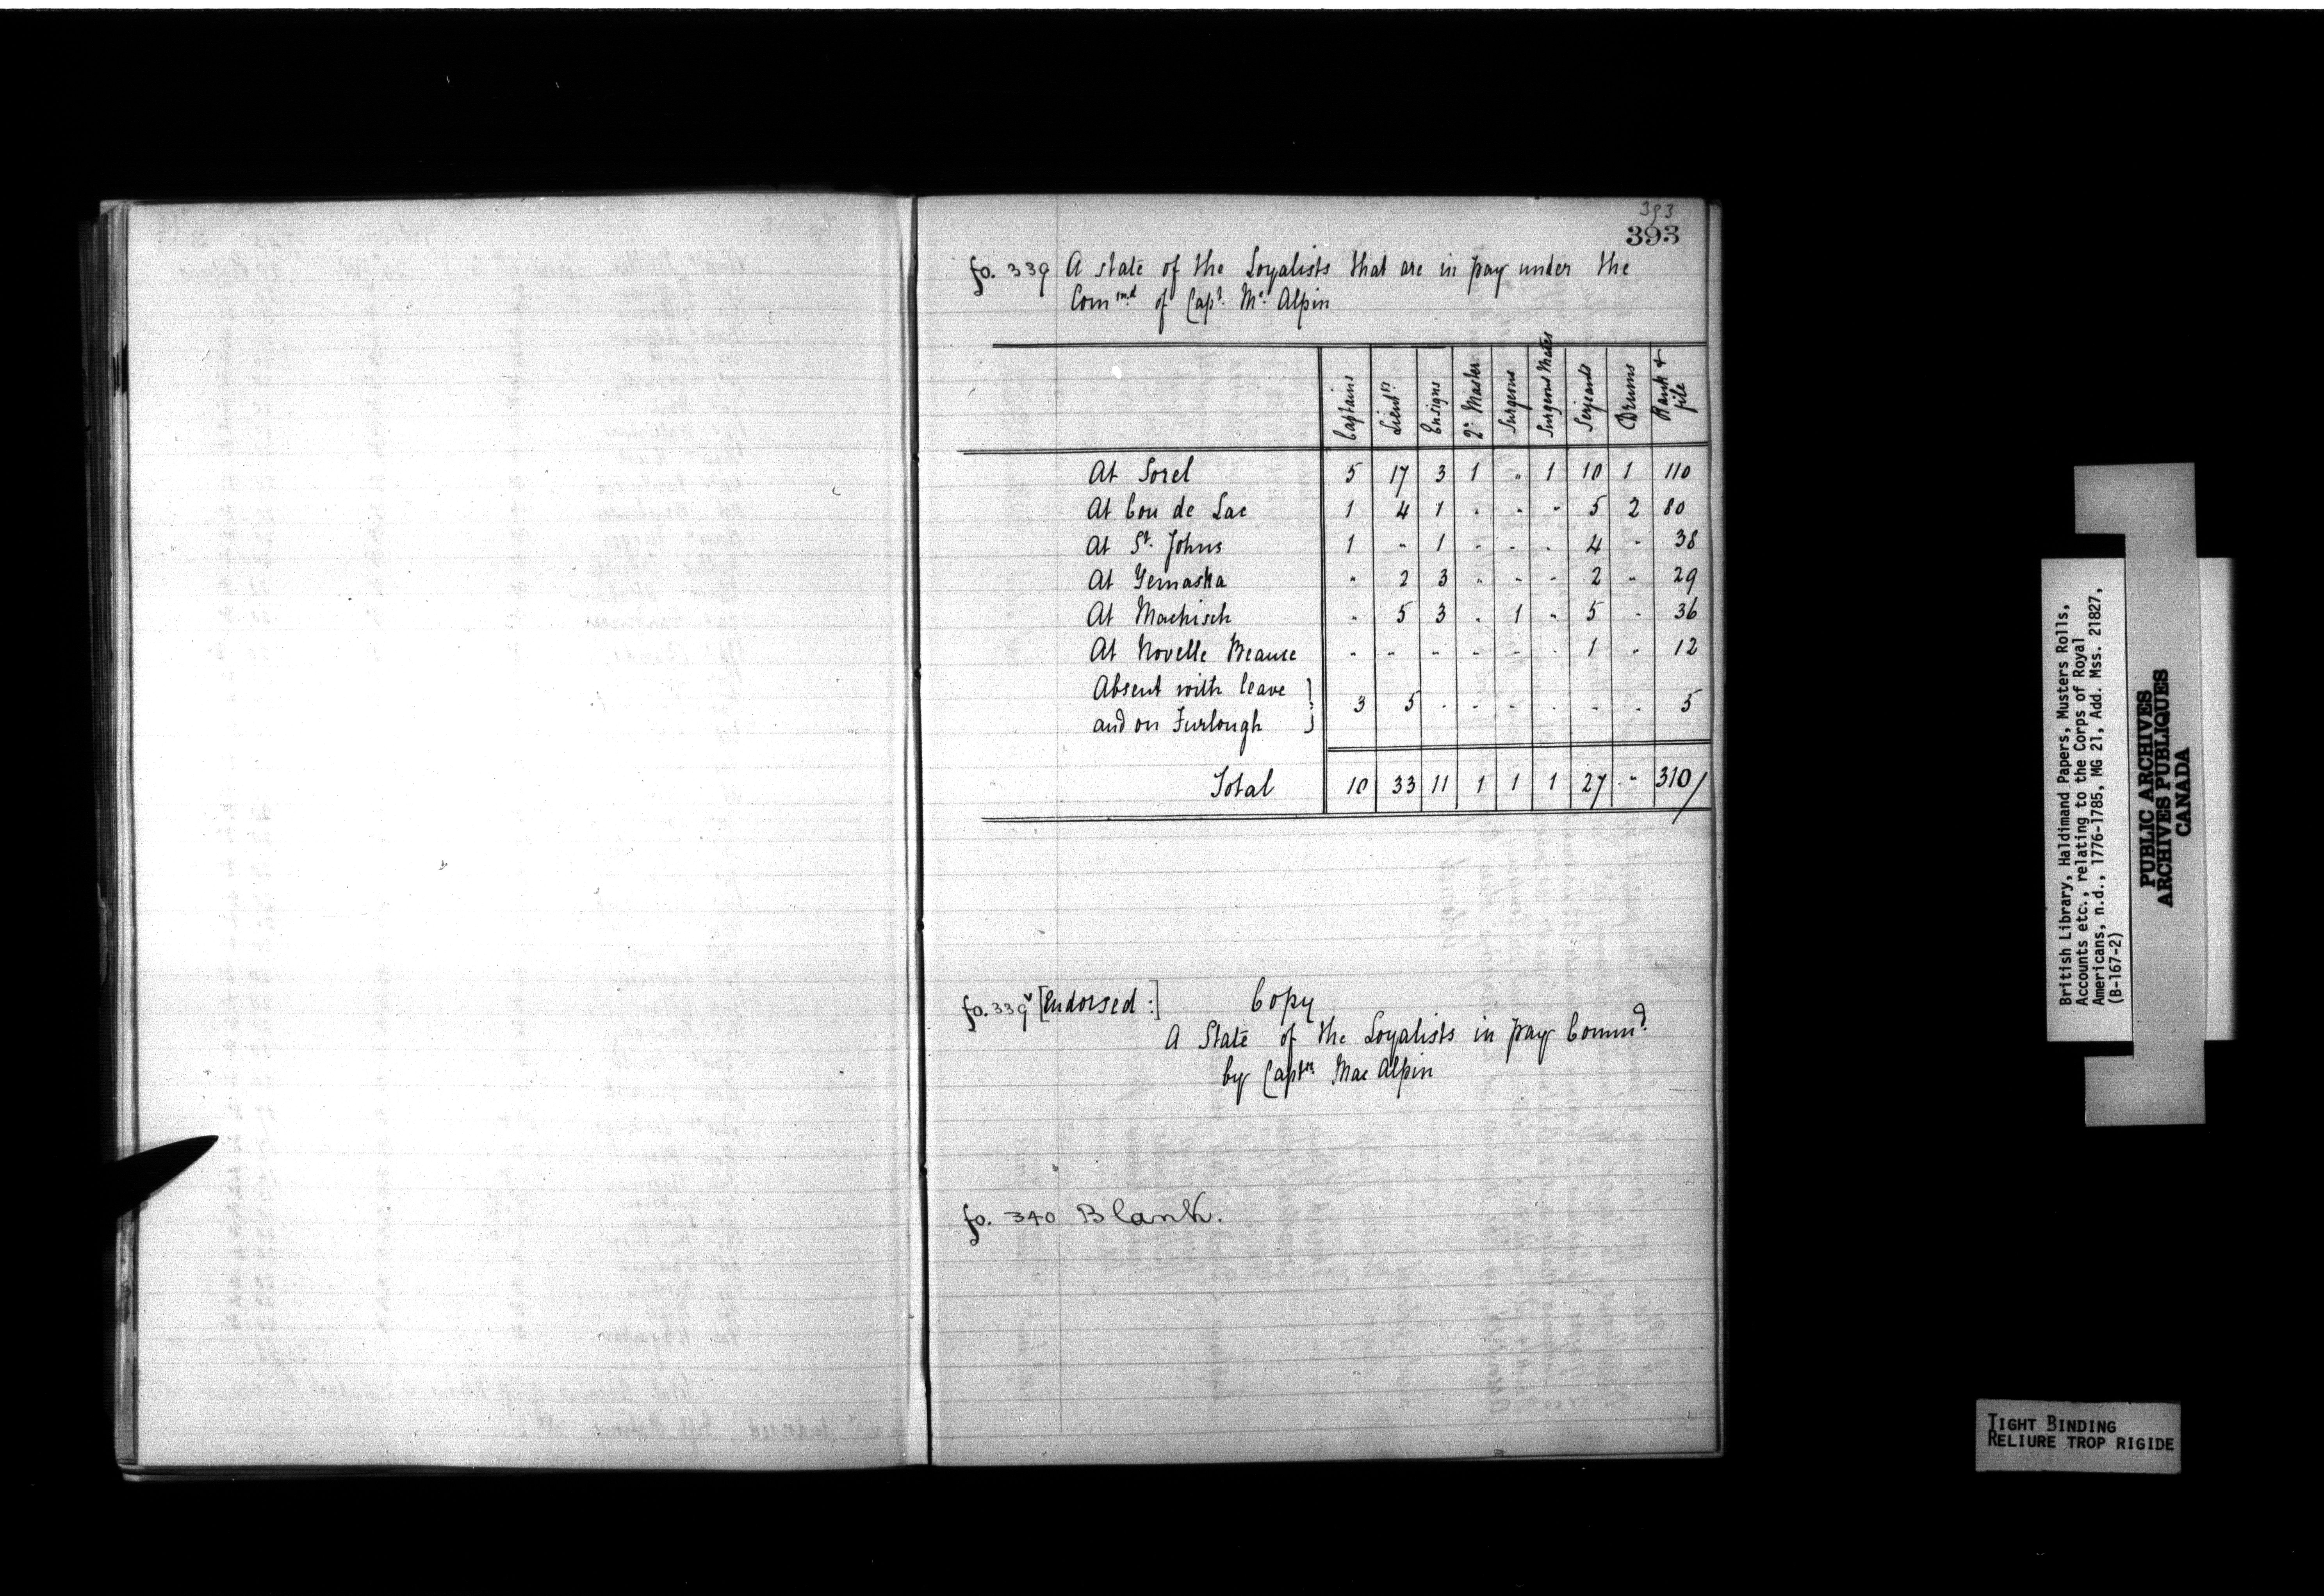 393
393
fo. 339 A state of the Loyalists that are in pay under the
Com^md of Cap^t. M^c. Alpin
Captains Lieut^ts Ensigns 2^r. Master Surgeons Surgeons Mates Serjeants Drums Rank & file
At Sorel 5 17 3 1 " 1 10 1 110
At Cou de Lac 1 4 1 " " " 5 2 80
At S^t. Johns 1 " 1 " " " 4 " 38
At Yemaska " 2 3 " " " 2 " 29
At Machisch " 5 3 " 1 " 5 " 36
At Novelle Beause " " " " " " 1 " 12
Absent with leave
and on Furlough } 3 5 " " " " " " 5
Total 10 33 11 1 1 1 27 " 310/
fo. 339^v [Endorsed:] Copy
A State of the Loyalists in pay Comm^d.
by Capt^n Mac Alpin
fo. 340 Blank.
British Library, Haldimand Papers, Musters Rolls,
Accounts etc., relating to the Corps of Royal
Americans, n.d., 1776-1785, MG 21, Add. Mss. 21827,
(B-167-2)
PUBLIC ARCHIVES
ARCHIVES PUBLIQUES
CANADA
TIGHT BINDING
RELIURE TROP RIGIDE